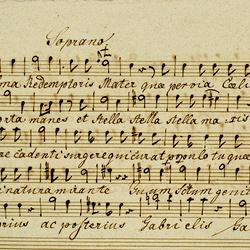 Soprano
ma Redemptoris Mater quæ pervia Cœli
orta manes et Stella Stella stella maris
re cadenti surgere qui curat populo tu quæ
natura mirante tuum Sctum genit
rius ac posterius Gabrielis